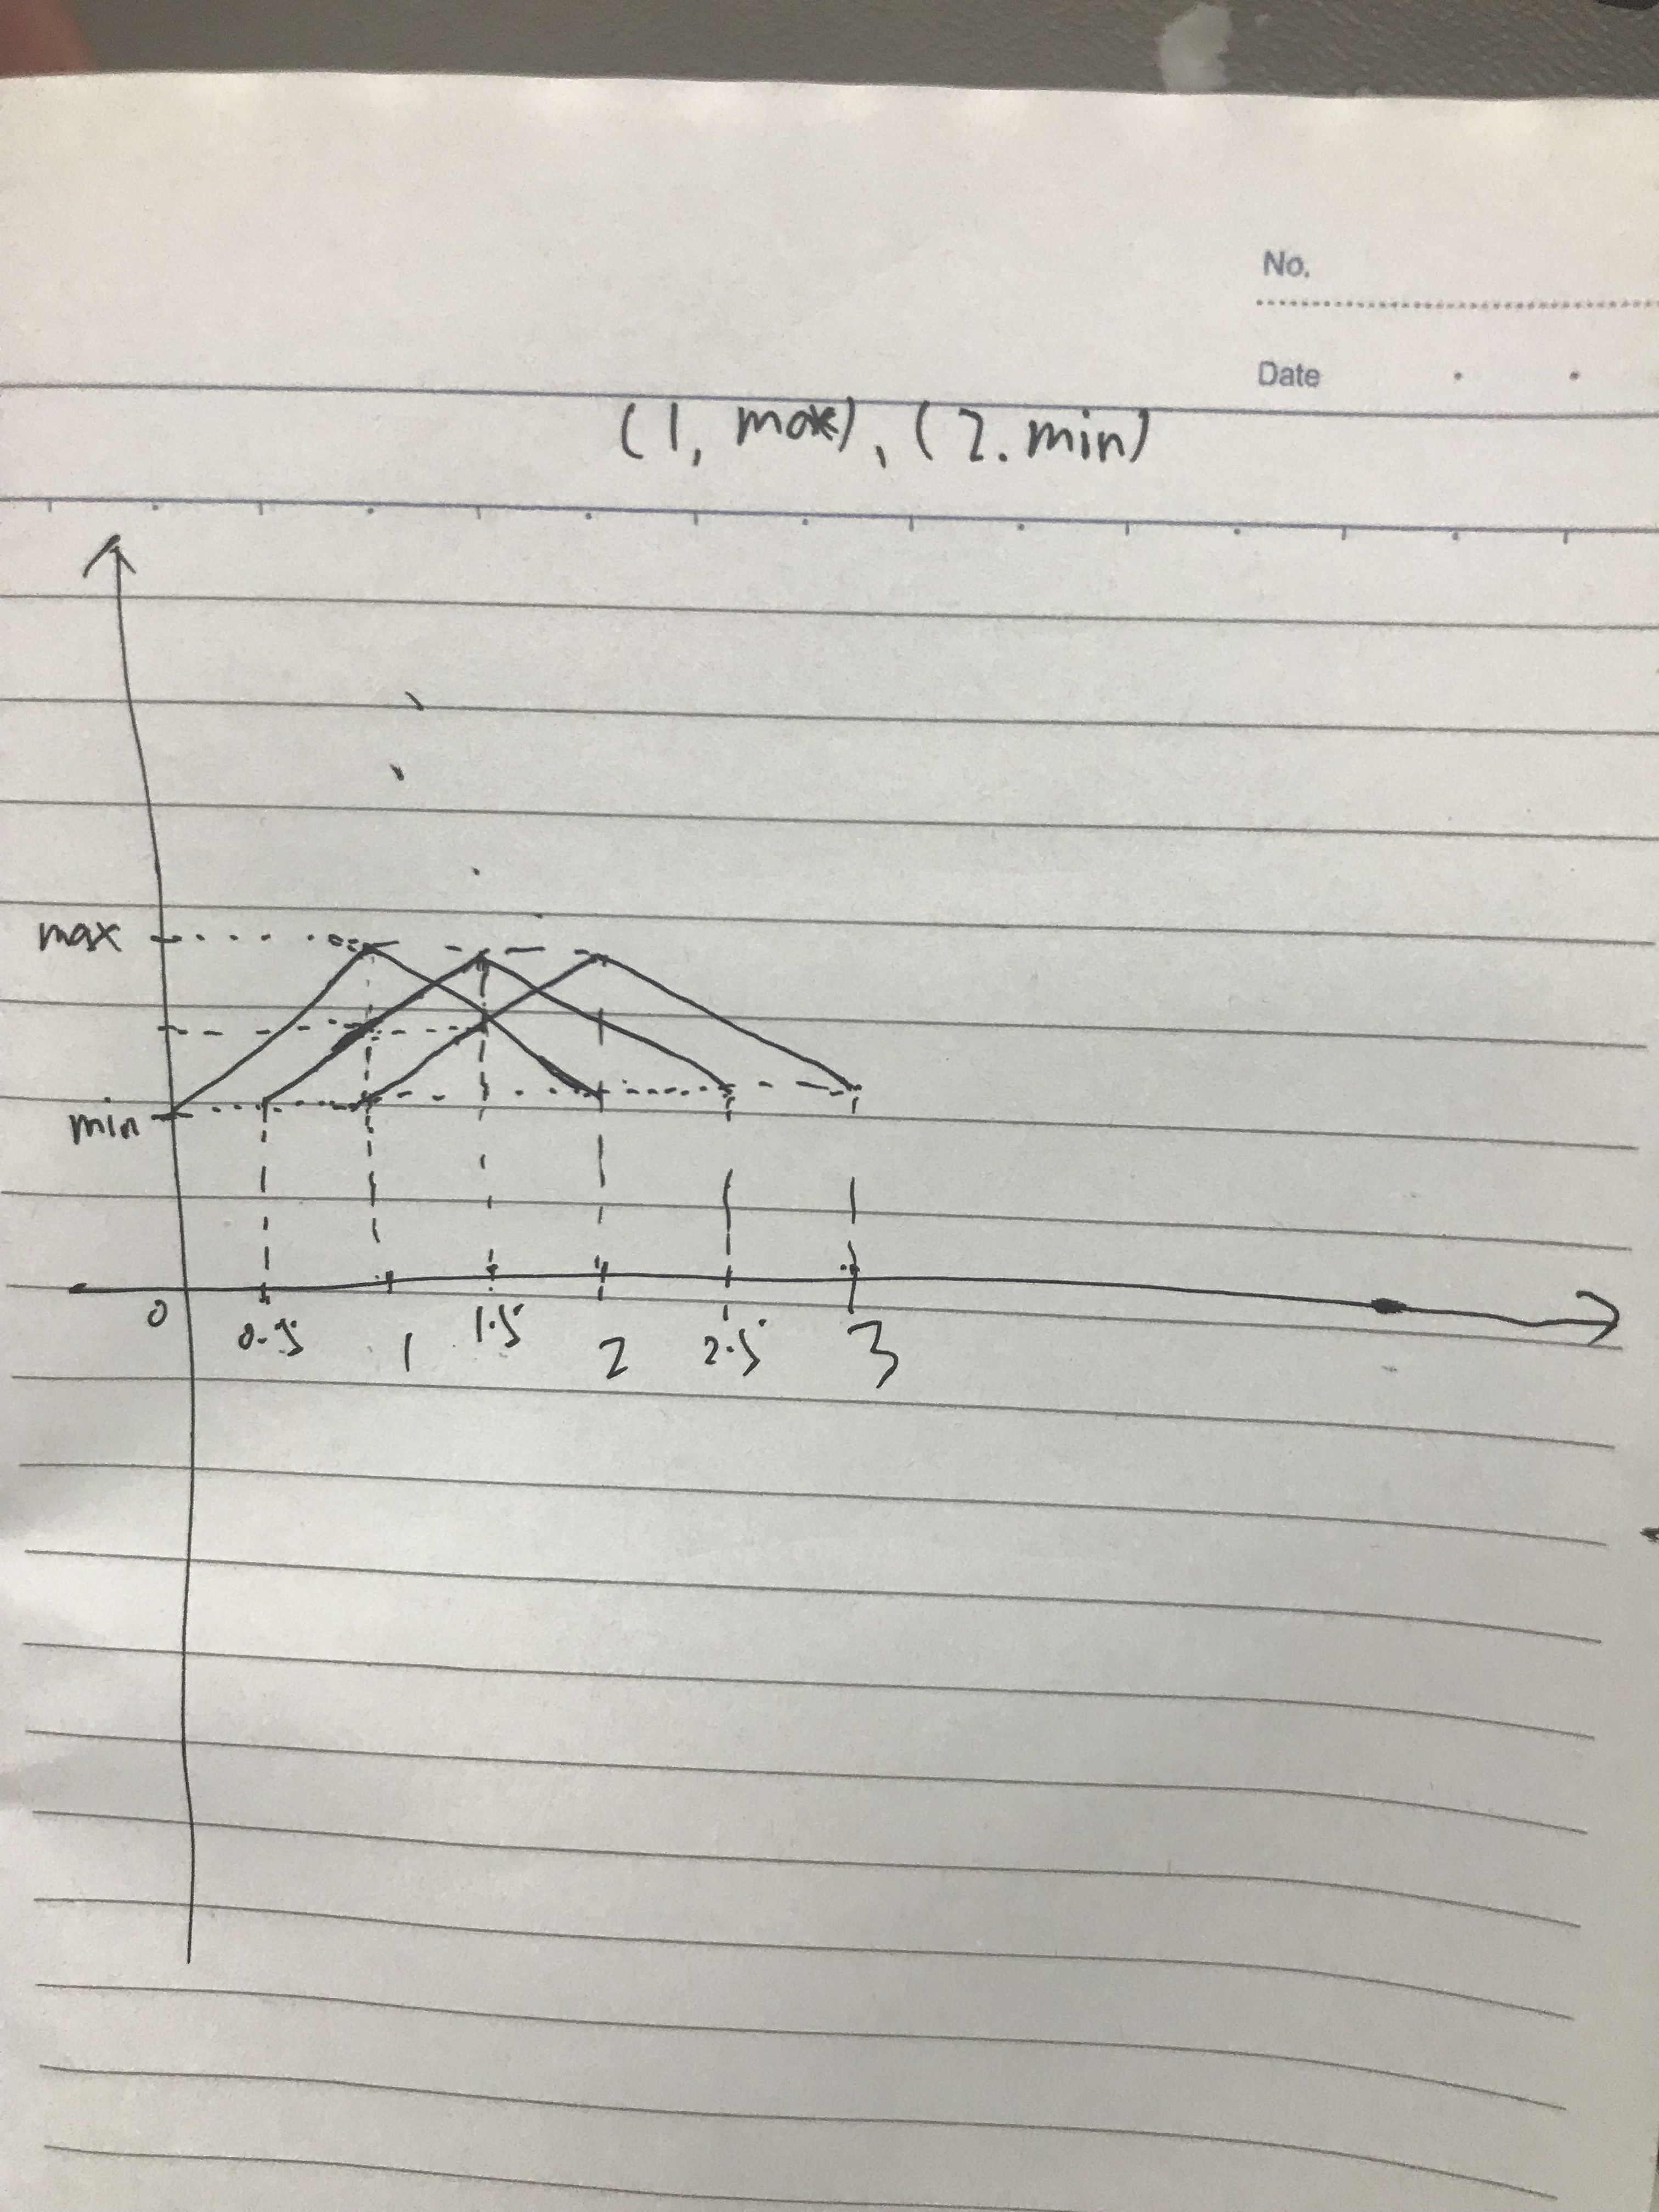 No.
Date
(1, max), (2. min)
max
min
0
0.5
1
1.5
2
2.5
3